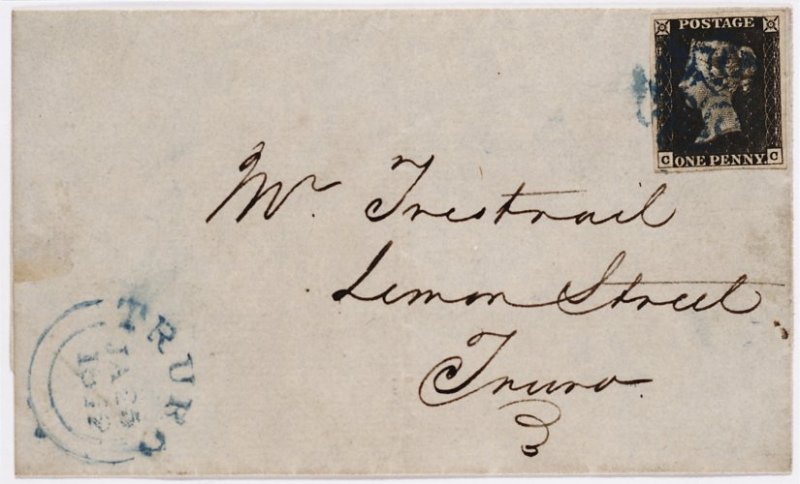 POSTAGE
C ONE PENNY. C
Mr. Trestrail
Lemon Street
Truro
TRURO
JA 25